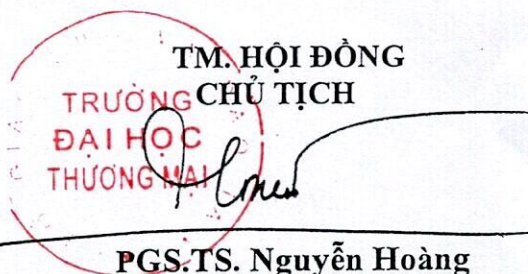 TM. HỘI ĐỒNG
CHỦ TỊCH
TRƯỜNG
ĐẠI HỌC
THƯƠNG MẠI
PGS.TS. Nguyễn Hoàng